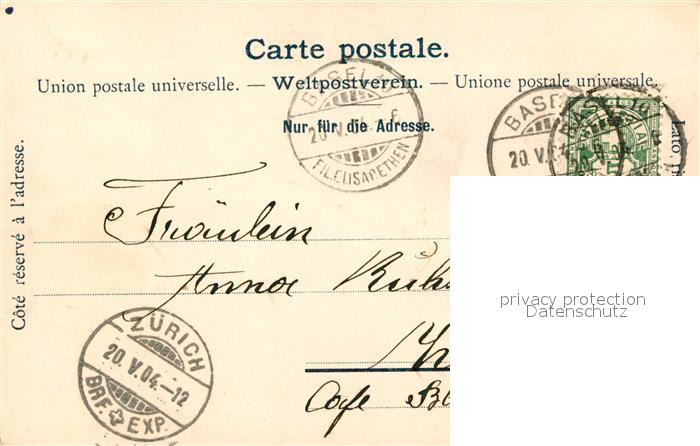 Carte postale.
Union postale universelle. — Weltpostverein. — Unione postale universale.
Nur für die Adresse.
Côté réservé à l'adresse.
BASEL
20.V.04
FIL.ELISABETHEN
BASEL
20.V.
BASEL
Fräulein
Anna
privacy protection
Datenschutz
ZÜRICH
20.V.04.-12
BRF. EXP.
Cafe